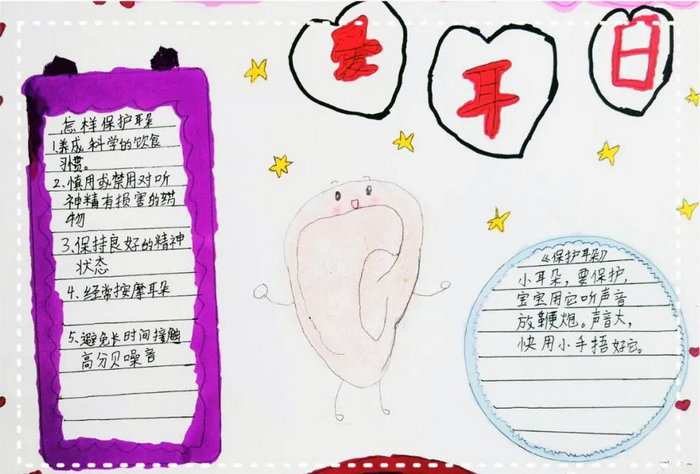 爱耳日
怎样保护耳朵
1.养成科学的饮食
习惯。
2.慎用或禁用对听
神精有损害的药
物
3.保持良好的精神
状态
4.经常按摩耳朵
5.避免长时间接触
高分贝噪音
《保护耳朵》
小耳朵，要保护，
宝宝用它听声音
放鞭炮。声音大，
快用小手捂好它。